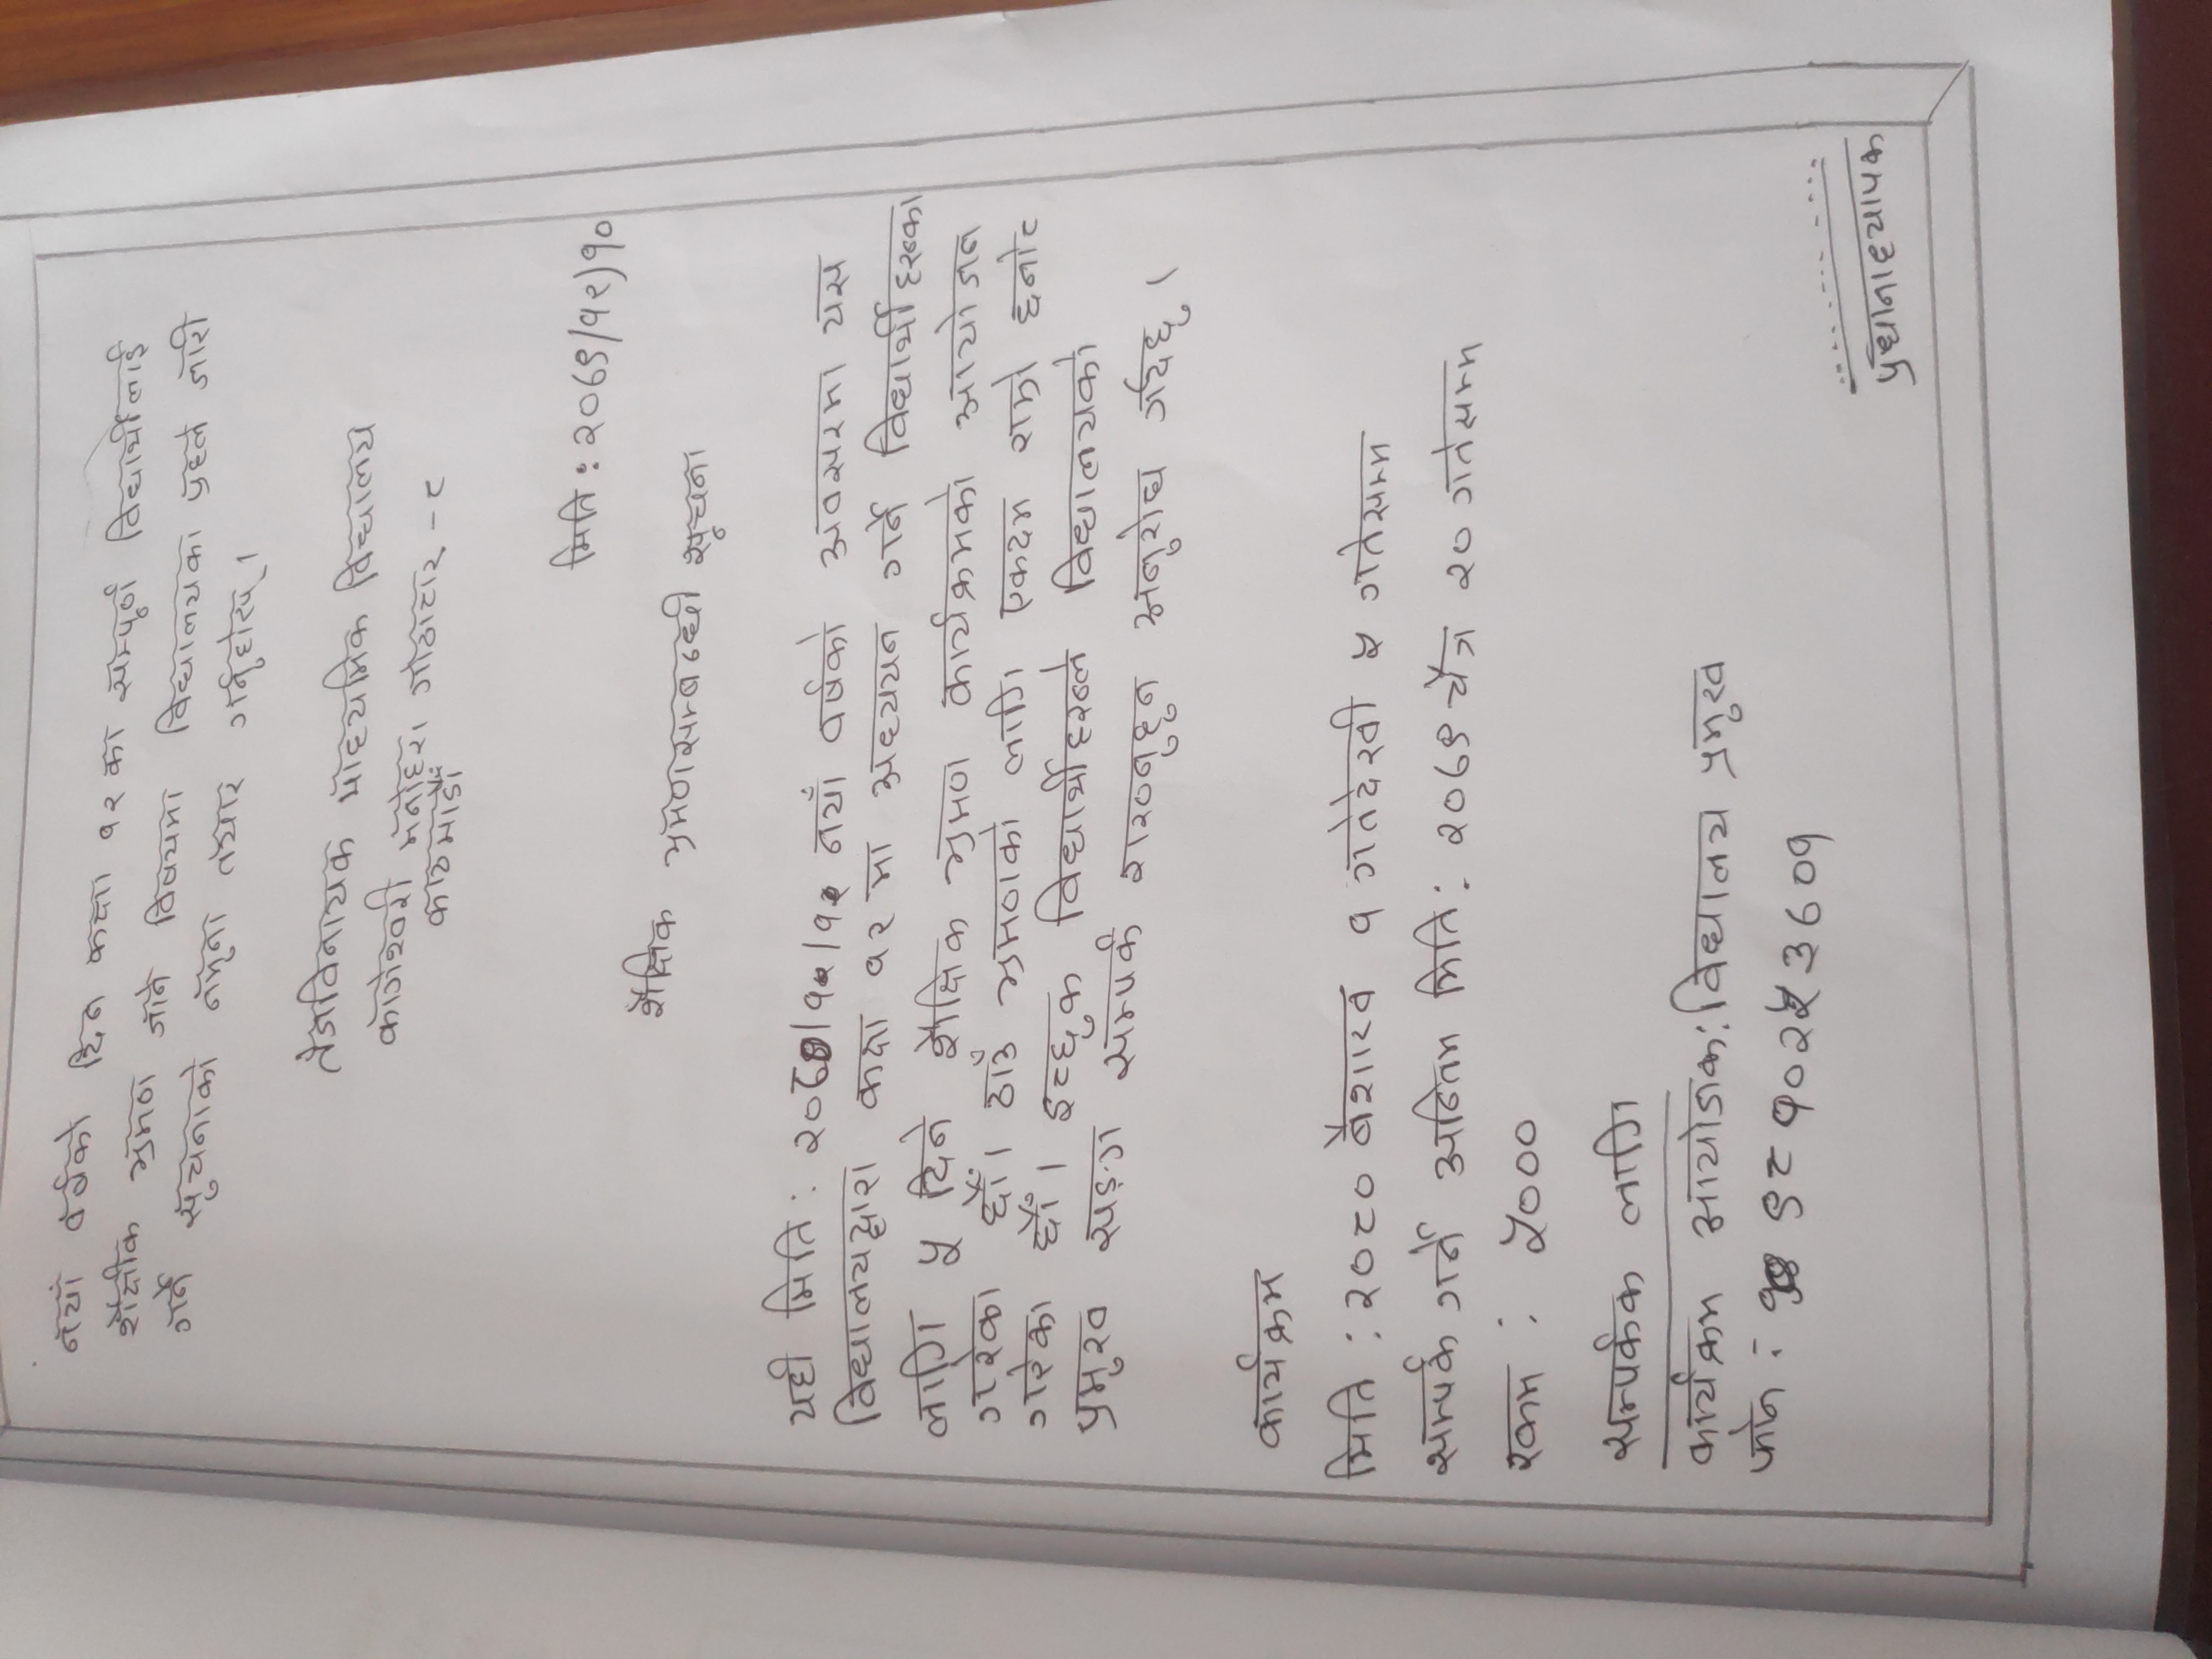 नयाँ वर्षको दिन कक्षा १२ का सम्पूर्ण विद्यार्थीलाई
शैक्षीक भ्रमण जाने विषयमा विद्यालयका प्रहले जारी
गर्ने सूचनाको नमूना तयार गर्नुहोस् ।
तेजविनायक माध्यमिक विद्यालय
कागेश्वरी मनोहरा गोठाटार - ८
काठमाडौँ
मिति : २०७९/१२/१०
शैक्षिक भ्रमणसम्बन्धी सूचना
यही मिति : नयाँ वर्षको अवसरमा यस
विद्यालयद्वारा कक्षा १२ मा अध्ययन गर्ने विद्यार्थीहरूका
लागि ५ दिने शैक्षिक भ्रमण कार्यक्रमको आयोजन
गरेका छौँ। ठाउँ भ्रमणको लागि एकदम राम्रो छनोट
गरेका छौँ। इच्छुक विद्यार्थीहरूले विद्यालयको
प्रमुख सङ्ग सम्पर्क राख्नुहुन अनुरोध गर्दछु ।
कार्यक्रम
मिति : २०८० बैशाख १ गतेदेखी ५ गतेसम्म
सम्पर्क गर्ने अन्तिम मिति : २०७९ चैत्र २० गतेसम्म
रकम : ५०००
सम्पर्कक लागि
कार्यक्रम आयोजक : विद्यालय प्रमुख
फोन : ९८१०२५३७०१
प्रधानाध्यापक